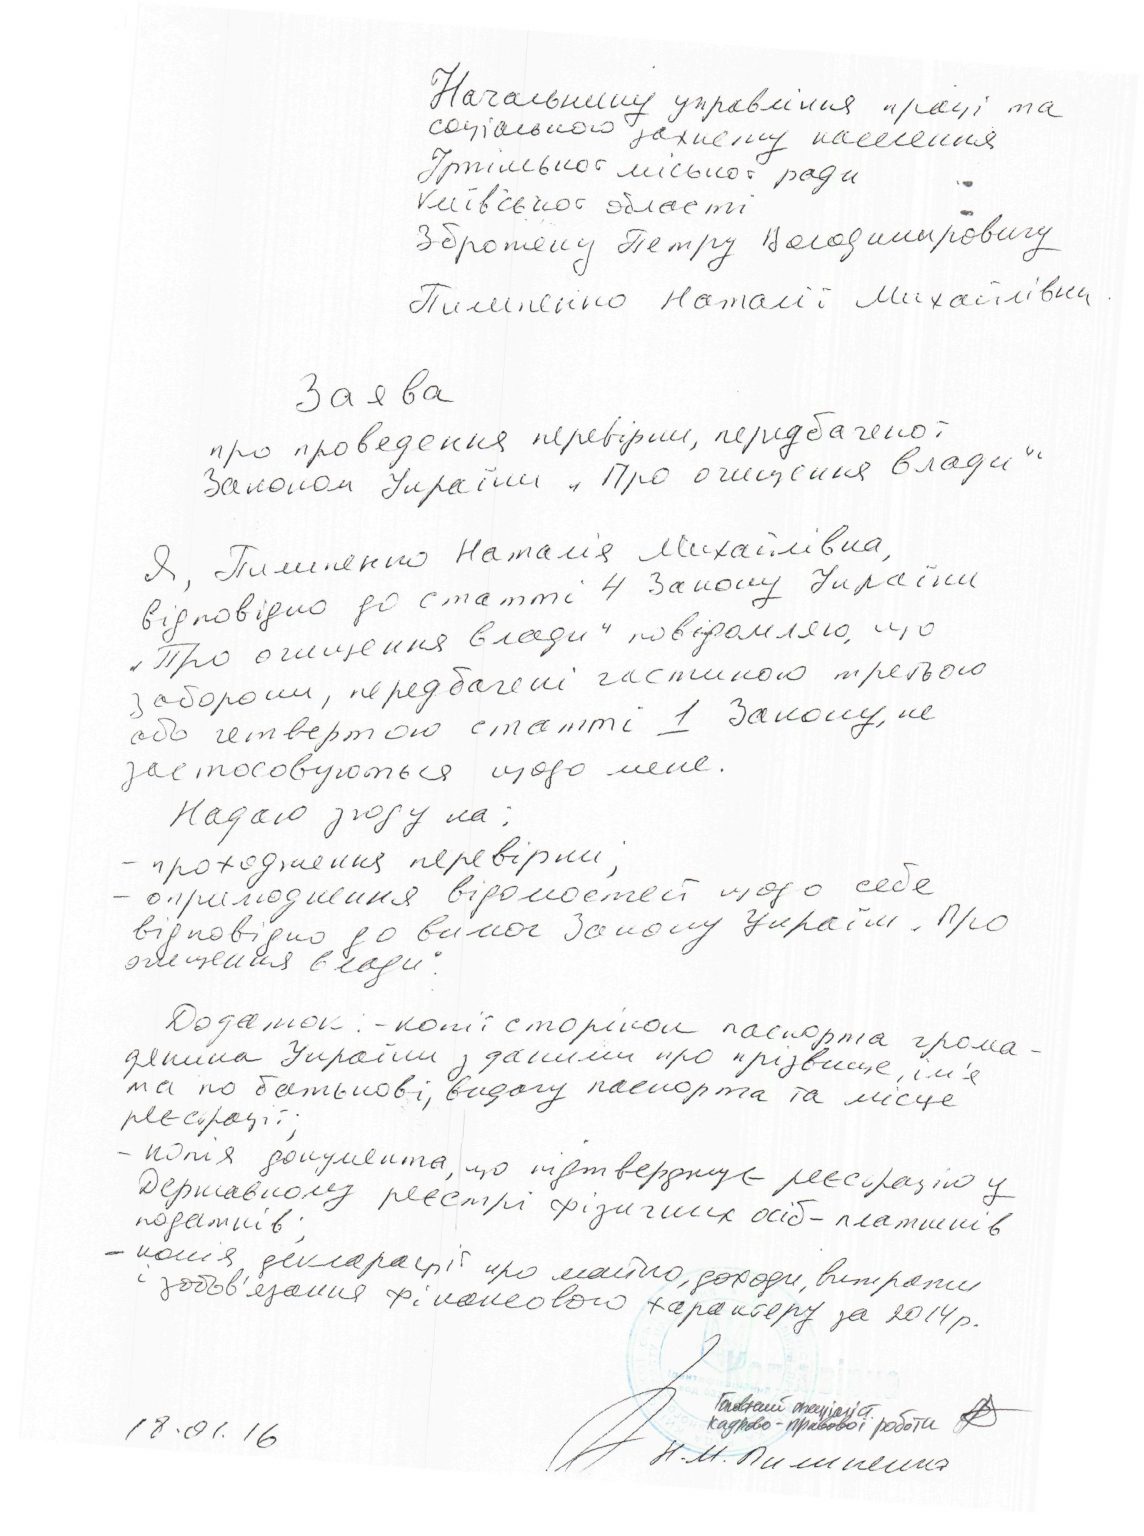 Начальнику управління праці та
соціального захисту населення
Ірпінської міської ради
Київської області
Петру Володимировичу
Пилипенко Наталії Михайлівни
Заява
про проведення перевірки, передбаченої
Законом України „Про очищення влади"
Я, Пилипенко Наталія Михайлівна,
відповідно до статті 4 Закону України
„Про очищення влади" повідомляю, що
заборони, передбачені частиною третьою
або четвертою статті 1 Закону, не
застосовуються щодо мене.
Надаю згоду на:
- проходження перевірки;
- оприлюднення відомостей щодо себе
відповідно до вимог Закону України „Про
очищення влади".
Додаток: - копії сторінок паспорта грома-
дянина України з даними про прізвище, ім'я
та по батькові, видачу паспорта та місце
реєстрації;
- копія документа, що підтверджує реєстрацію у
Державному реєстрі фізичних осіб - платників
податків;
- копія декларації про майно, доходи, витрати
і зобов'язання фінансового характеру за 2014 р.
Головний спеціаліст
кадрово - правової роботи
18.01.16
Н.М. Пилипенко